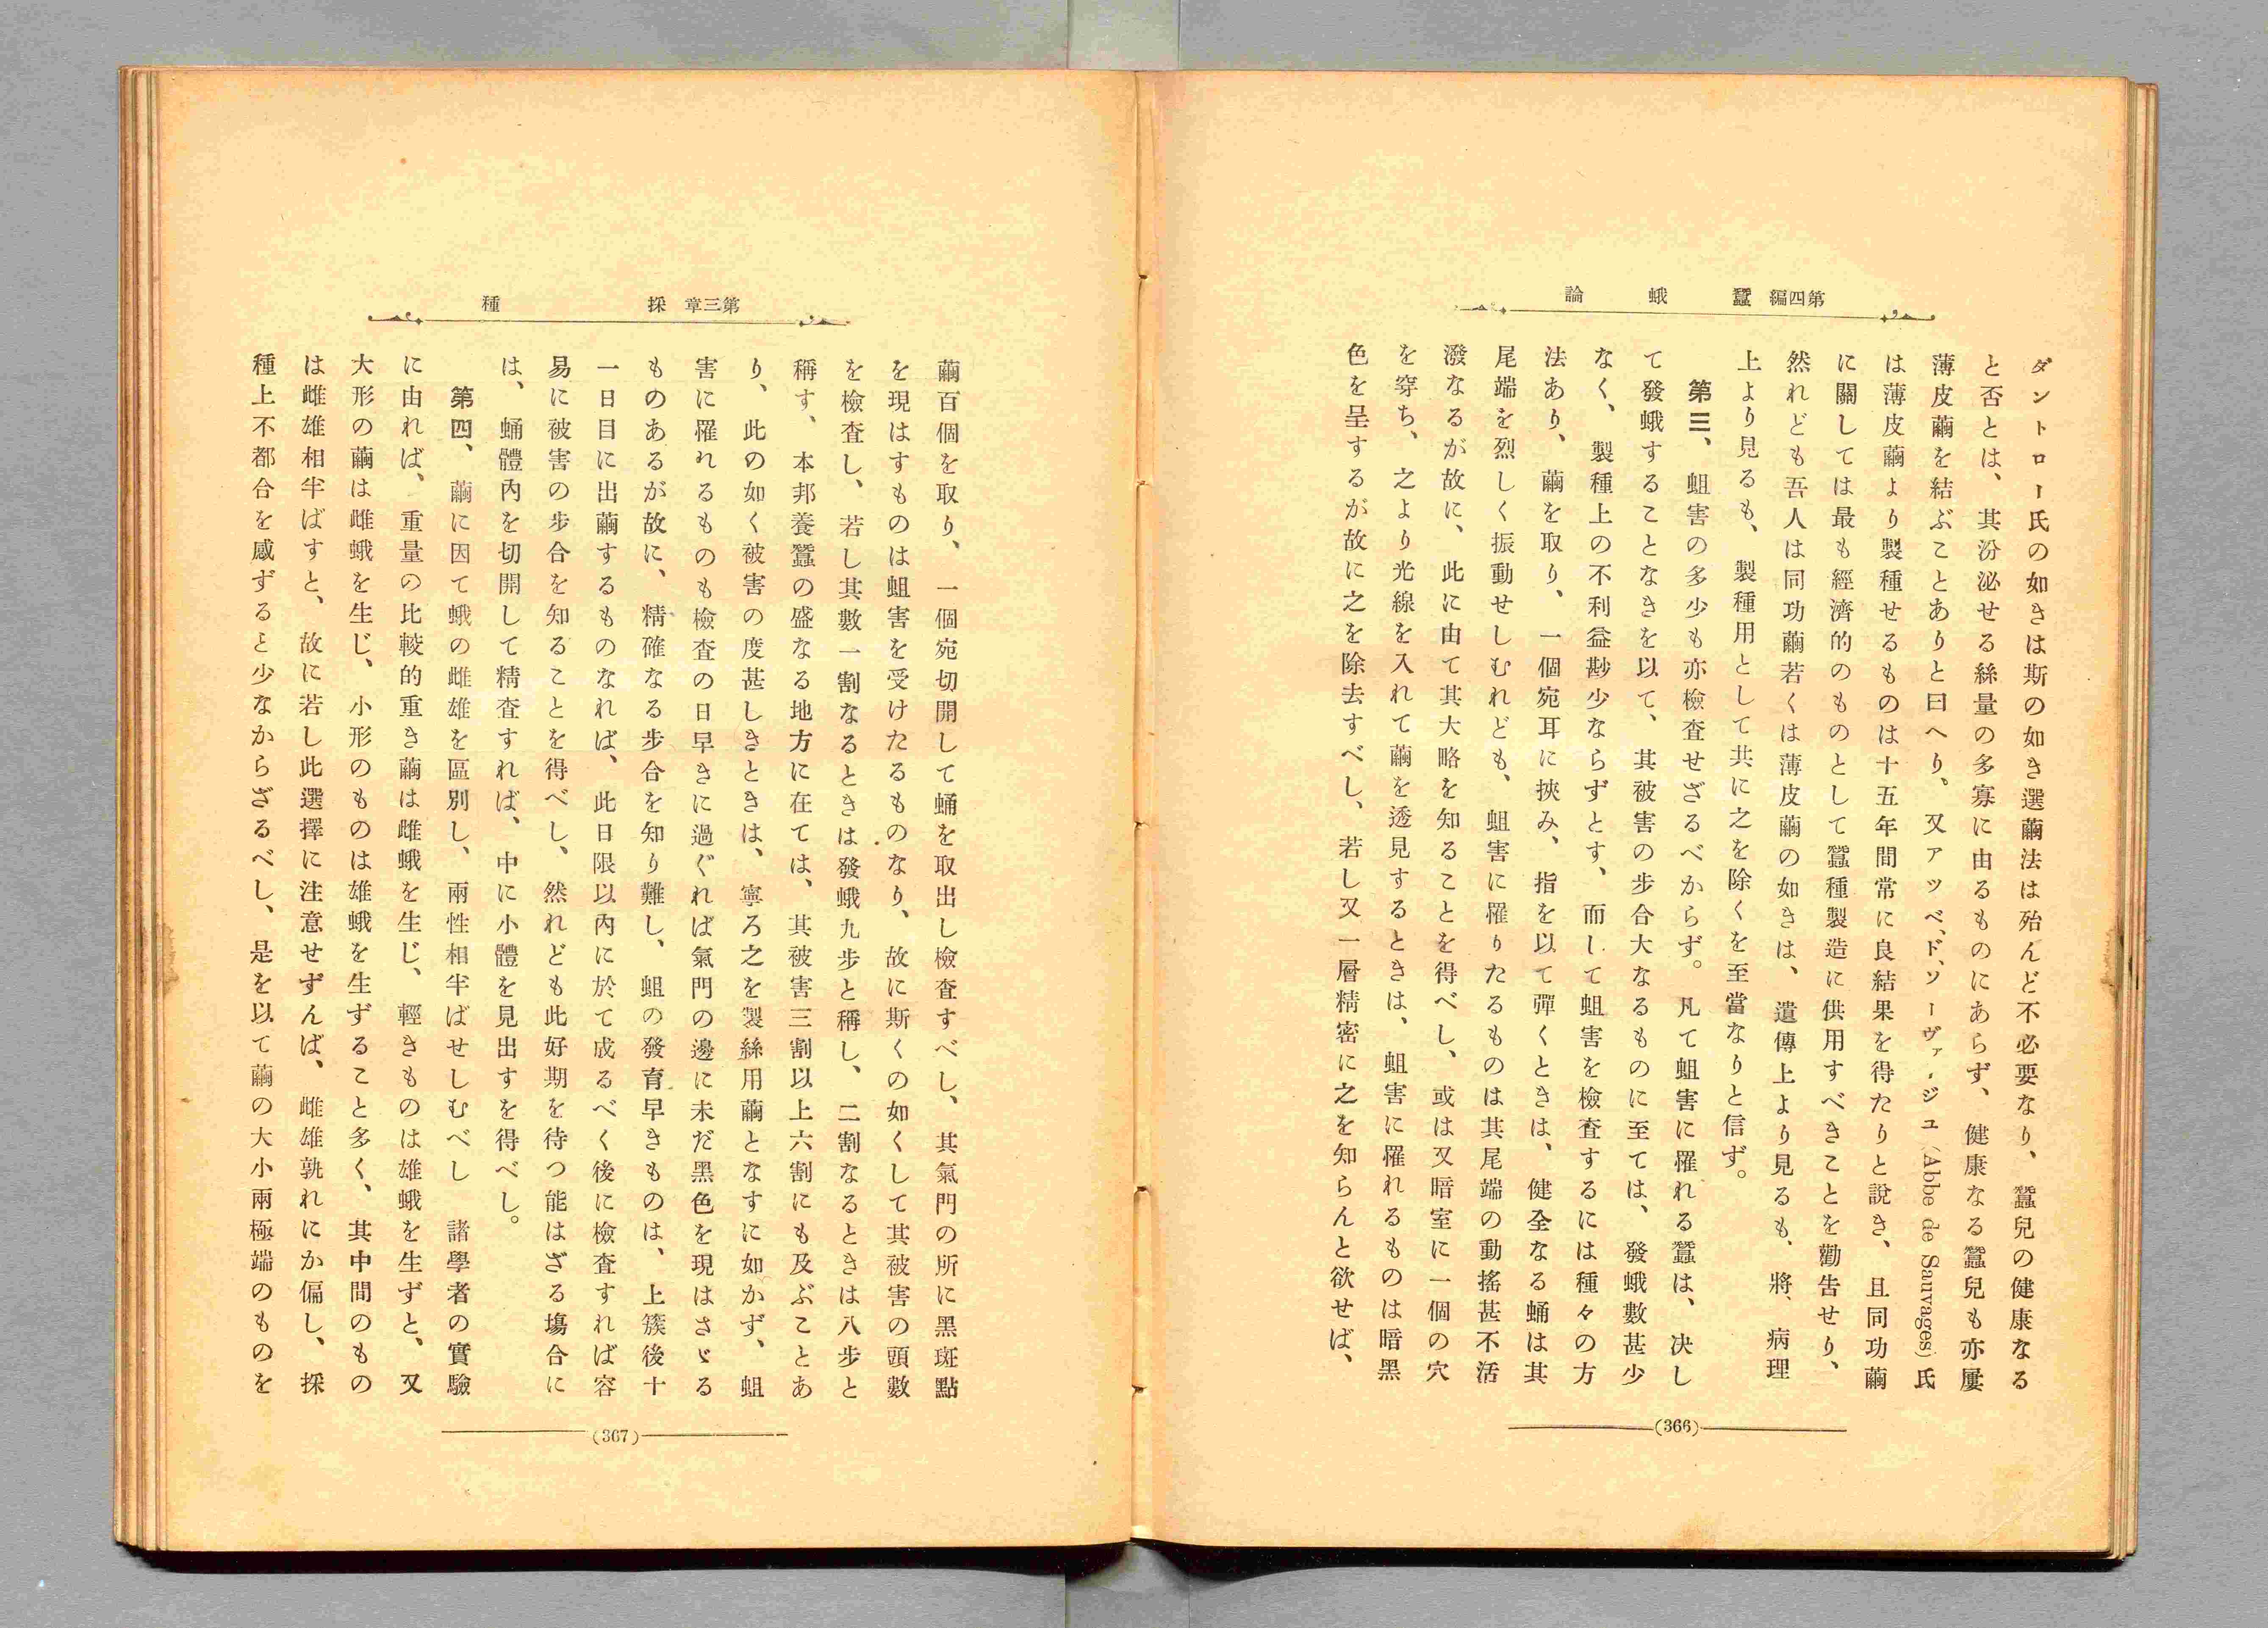 第四編　蠶蛾論
ダントロー氏の如きは斯の如き選繭法は殆んど不必要なり、蠶兒の健康なる
と否とは、其汾泌せる絲量の多寡に由るものにあらず、健康なる蠶兒も亦屢
薄皮繭を結ぶことありと曰へり。又アッベ、ド、ソーヴァージユ(Abbe de Sauvages)氏
は薄皮繭より製種せるものは十五年間常に良結果を得たりと說き、且同功繭
に關しては最も經濟的のものとして蠶種製造に供用すべきことを勸告せり、
然れども吾人は同功繭若くは薄皮繭の如きは、遺傳上より見るも、將、病理
上より見るも、製種用として共に之を除くを至當なりと信ず。
第三、蛆害の多少も亦檢査せざるべからず。凡て蛆害に罹れる蠶は、決し
て發蛾することなきを以て、其被害の步合大なるものに至ては、發蛾數甚少
なく、製種上の不利益尠少ならずとす、而して蛆害を檢査するには種々の方
法あり、繭を取り、一個宛耳に挾み、指を以て彈くときは、健全なる蛹は其
尾端を烈しく振動せしむれども、蛆害に罹りたるものは其尾端の動搖甚不活
潑なるが故に、此に由て其大略を知ることを得べし、或は又暗室に一個の穴
を穿ち、之より光線を入れて繭を透見するときは、蛆害に罹れるものは暗黑
色を呈するが故に之を除去すべし、若し又一層精密に之を知らんと欲せば、
(366)
第三章　採種
繭百個を取り、一個宛切開して蛹を取出し檢査すべし、其氣門の所に黑斑點
を現はすものは蛆害を受けたるものなり、故に斯くの如くして其被害の頭數
を檢査し、若し其數一割なるときは發蛾九步と稱し、二割なるときは八步と
稱す、本邦養蠶の盛なる地方に在ては、其被害三割以上六割にも及ぶことあ
り、此の如く被害の度甚しきときは、寧ろ之を製絲用繭となすに如かず、蛆
害に罹れるものも檢査の日早きに過ぐれば氣門の邊に未だ黑色を現はさゞる
ものあるが故に、精確なる步合を知り難し、蛆の發育早きものは、上簇後十
一日目に出繭するものなれば、此日限以內に於て成るべく後に檢査すれば容
易に被害の步合を知ることを得べし、然れども此好期を待つ能はざる場合に
は、蛹體內を切開して精査すれば、中に小體を見出すを得べし。
第四、繭に因て蛾の雌雄を區別し、兩性相半ばせしむべし　諸學者の實驗
に由れば、重量の比較的重き繭は雌蛾を生じ、輕きものは雄蛾を生ずと、又
大形の繭は雌蛾を生じ、小形のものは雄蛾を生ずること多く、其中間のもの
は雌雄相半ばすと、故に若し此選擇に注意せずんば、雌雄孰れにか偏し、採
種上不都合を感ずると少なからざるべし、是を以て繭の大小兩極端のものを
(367)